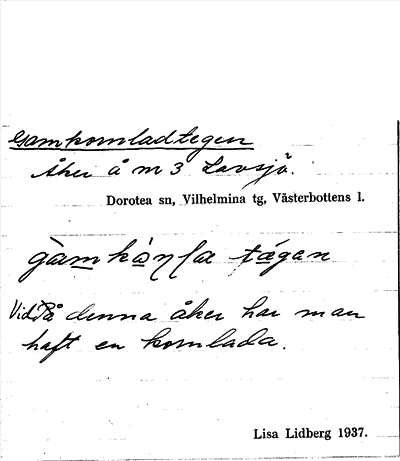 Gamkornladtegen
Åker å m 3 Lavsjö.
Dorotea sn, Vilhelmina tg, Västerbottens l.
tägan
Vid På denna åker har man
haft en kornlada.
Lisa Lidberg 1937.